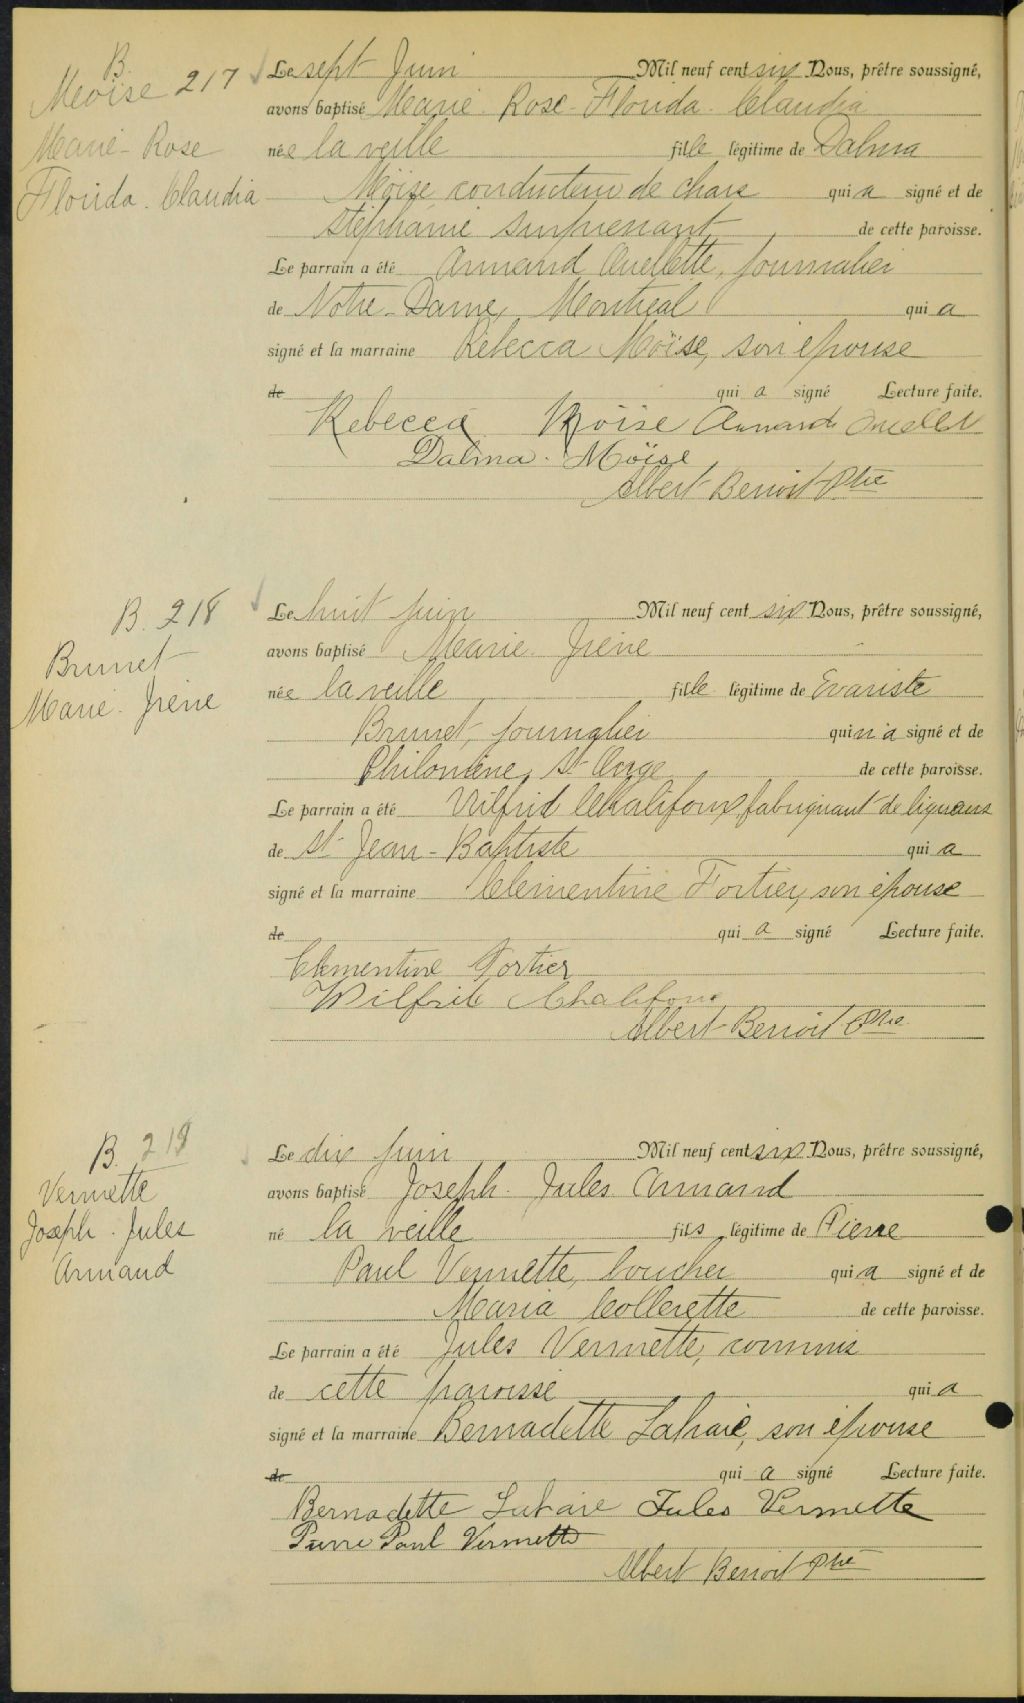 B. 217
Meoise
Marie-Rose
Florida. Claudia
Le sept Juin Mil neuf cent six Nous, prêtre soussigné,
avons baptisé Marie. Rose. Florida. Claudia
née la veille fille légitime de Dalma
Moïse conducteur de chars qui a signé et de
Stéphanie Surprenant de cette paroisse.
Le parrain a été Armand Ouellette, journalier
de Notre-Dame, Montréal qui a
signé et la marraine Rébecca Moïse, son épouse
de qui a signé Lecture faite.
Rebecca Moïse Armand Ouellet
Dalma. Moïse
Albert Benoit Ptre
B. 218
Brunet
Marie. Irène
Le huit juin Mil neuf cent six Nous, prêtre soussigné,
avons baptisé Marie. Irène
née la veille fille légitime de Evariste
Brunet, journalier qui n'a signé et de
Philomène St-Onge de cette paroisse.
Le parrain a été Wilfrid Chalifoux, fabriquant de liqueurs
de St-Jean-Baptiste qui a
signé et la marraine Clémentine Fortier, son épouse
de qui a signé Lecture faite.
Clementine Fortier
Wilfrid Chalifoux
Albert Benoit Ptre
B. 219
Vermette
Joseph. Jules
Armand
Le dix juin Mil neuf cent six Nous, prêtre soussigné,
avons baptisé Joseph. Jules Armand
né la veille fils légitime de Pierre
Paul Vermette, boucher qui a signé et de
Maria Collerette de cette paroisse.
Le parrain a été Jules Vermette, commis
de cette paroisse qui a
signé et la marraine Bernadette Lahaie, son épouse
de qui a signé Lecture faite.
Bernadette Lahaie Jules Vermette
Pierre Paul Vermette
Albert Benoit Ptre